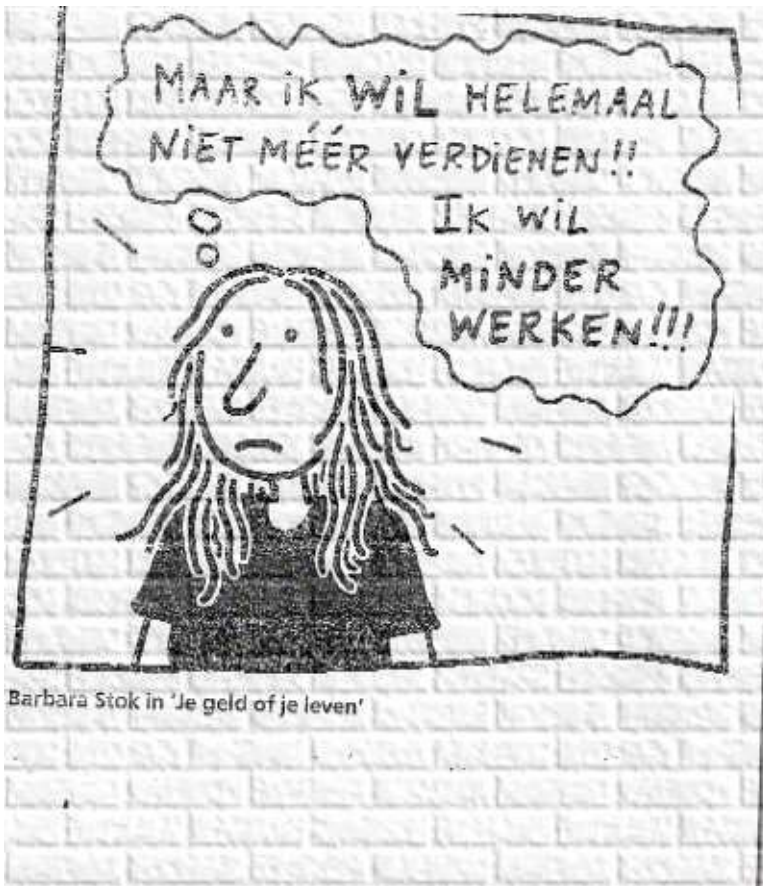 MAAR iK WiL HELEMAAL
NiET MÉÉR VERDiENEN!!
IK WiL
MiNDER
WERKEN!!!
Barbara Stok in 'Je geld of je leven'